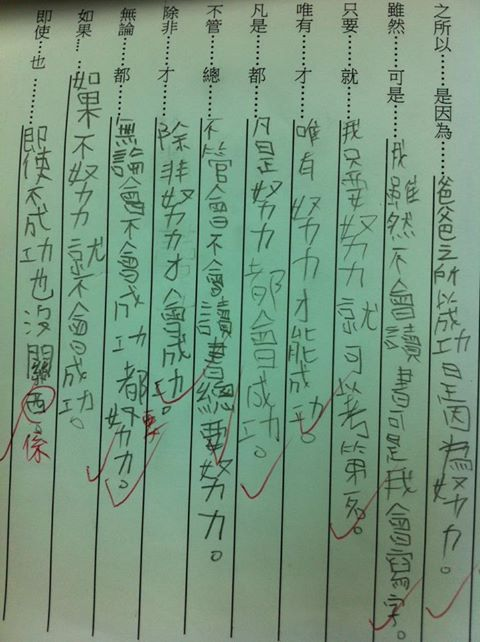 之所以……是因為……爸爸之所以成功是因為努力。
雖然……可是……我雖然不會讀書可是我會寫字。
只要……就……我只要努力就可以考第一名。
唯有……才……唯有努力才能成功。
凡是……都……凡是努力都會成功。
不管……總……不管會不會讀書總要努力。
除非……才……除非努力才會成功。
無論……都……無論會不會成功都要努力。
如果……如果不努力就不會成功。
即使……也……即使不成功也沒關西係。